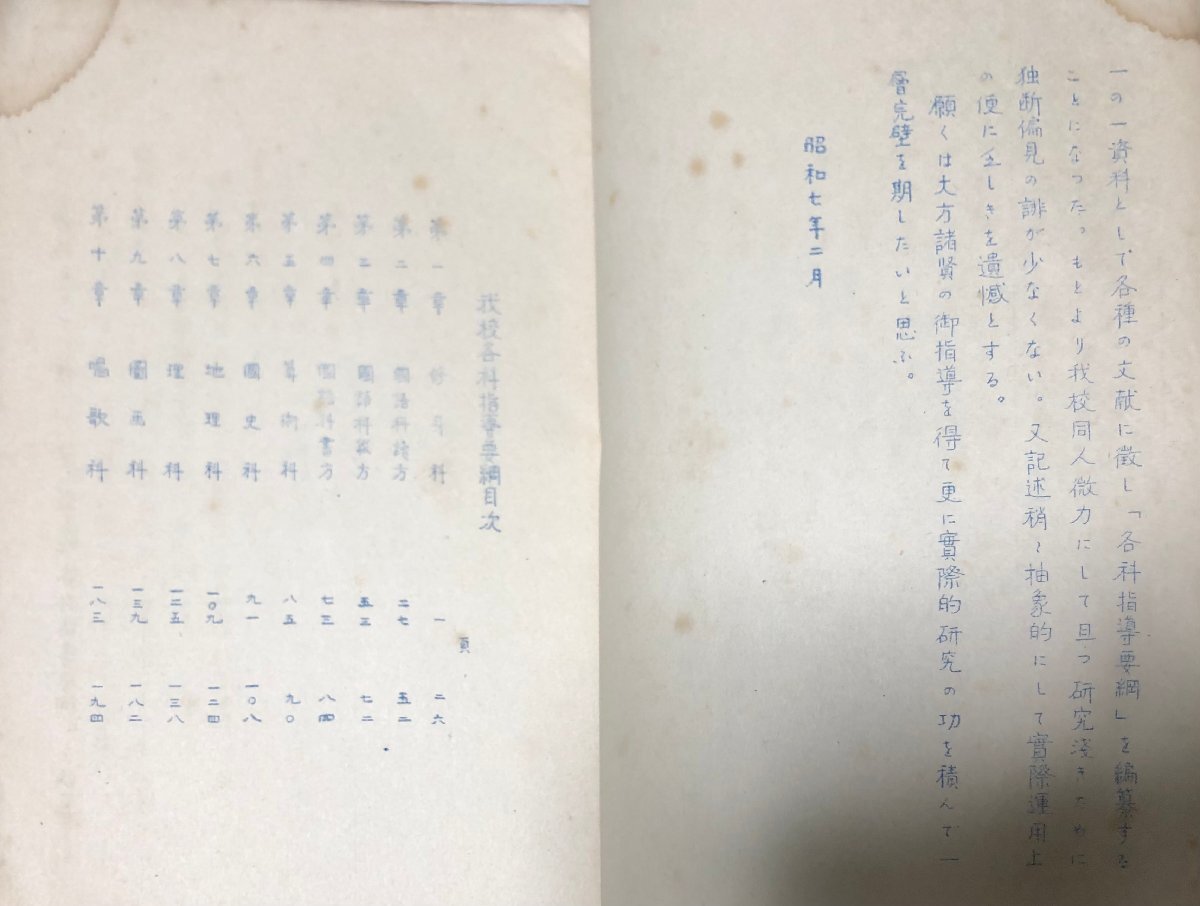 一の一資料として各種の文献に徴し「各科指導要綱」を編纂する
ことになつた。もとより我校同人微力にして且つ研究浅きために
独断偏見の誹が少なくない。又記述稍〻抽象的にして實際運用上
の便に乏しきを遺憾とする。
願くは大方諸賢の御指導を得て更に實際的研究の功を積んで一
層完璧を期したいと思ふ。
昭和七年二月
我校各科指導要綱目次
頁
第一章 修身科 一 二六
第二章 國語科讀方 二七 五二
第三章 國語科綴方 五三 七二
第四章 國語科書方 七三 八四
第五章 算術科 八五 九〇
第六章 國史科 九一 一〇八
第七章 地理科 一〇九 一二四
第八章 理科 一二五 一三八
第九章 圖画科 一三九 一八二
第十章 唱歌科 一八三 一九四